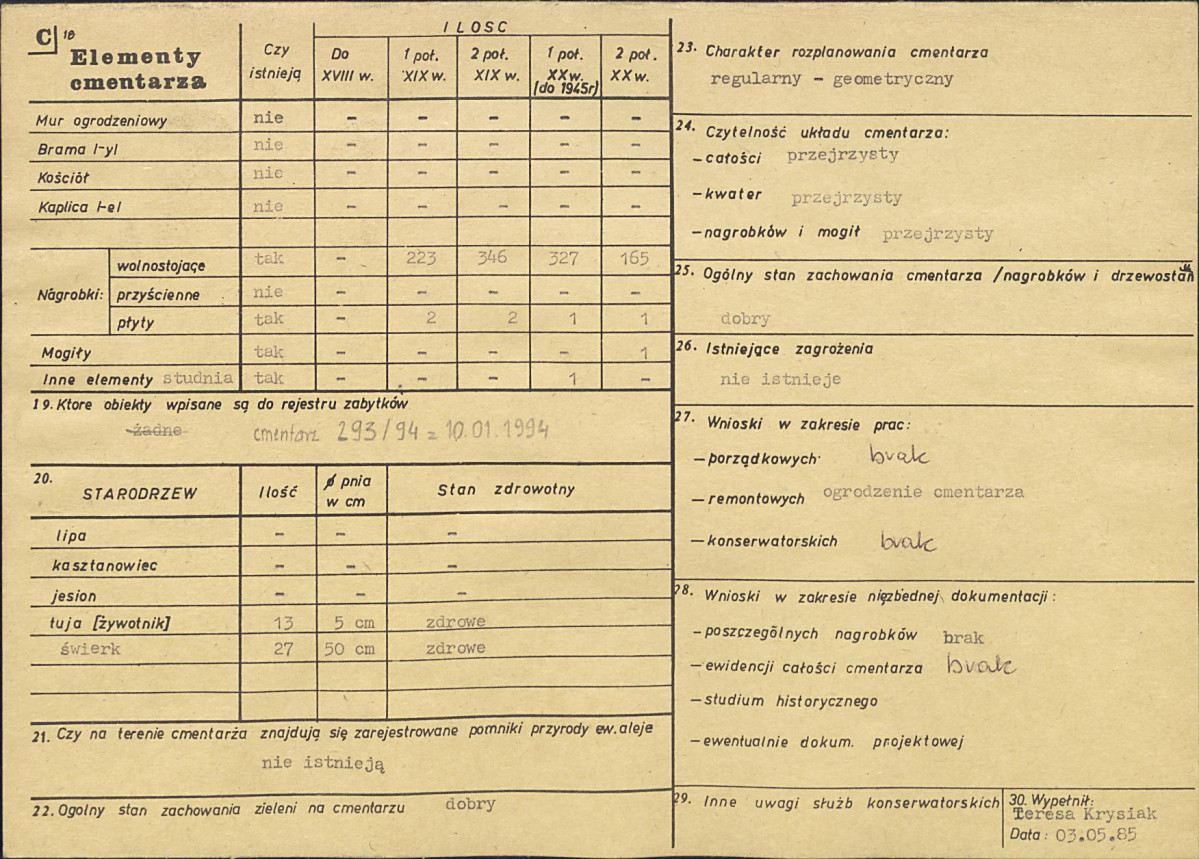 C 18 Elementy cmentarza
Czy istnieją
ILOSC
Do XVIII w.
1 poł. XIX w.
2 poł. XIX w.
1 poł. XX w. (do 1945r)
2 poł. XX w.
Mur ogrodzeniowy nie - - - - -
Brama l-yl nie - - - - -
Kościół nie - - - - -
Kaplica l-el nie - - - - -
Nagrobki:
wolnostojące tak - 223 346 327 165
przyścienne nie - - - - -
płyty tak - 2 2 1 1
Mogiły tak - - - - 1
Inne elementy studnia tak - - - 1 -
19. Ktore obiekty wpisane są do rejestru zabytków
żadne cmentarz 293/94 z 10.01.1994
20. STARODRZEW Ilość ø pnia w cm Stan zdrowotny
lipa - - -
kasztanowiec - - -
jesion - - -
tuja [żywotnik] 13 5 cm zdrowe
świerk 27 50 cm zdrowe
21. Czy na terenie cmentarza znajdują się zarejestrowane pomniki przyrody ew. aleje
nie istnieją
22. Ogolny stan zachowania zieleni na cmentarzu dobry
23. Charakter rozplanowania cmentarza
regularny - geometryczny
24. Czytelność układu cmentarza:
- całości przejrzysty
- kwater przejrzysty
- nagrobków i mogił przejrzysty
25. Ogólny stan zachowania cmentarza /nagrobków i drzewostan
dobry
26. Istniejące zagrożenia
nie istnieje
27. Wnioski w zakresie prac:
- porządkowych brak
- remontowych ogrodzenie cmentarza
- konserwatorskich brak
28. Wnioski w zakresie nięzbednej dokumentacji:
- poszczególnych nagrobków brak
- ewidencji całości cmentarza brak
- studium historycznego
- ewentualnie dokum. projektowej
29. Inne uwagi służb konserwatorskich
30. Wypełnił:
Teresa Krysiak
Data: 03.05.85